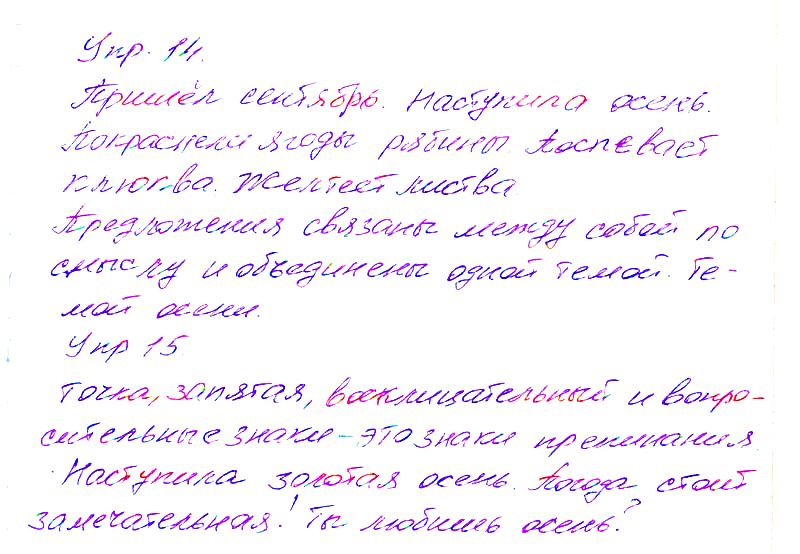 Упр. 14.
Пришёл сентябрь. Наступила осень.
Покраснели ягоды рябины. Поспевает
клюква. Желтеет листва
Предложения связаны между собой по
смыслу и объединены одной темой. Те-
мой осени.
Упр 15
Точка, запятая, восклицательный и вопро-
сительные знаки – это знаки препинания.
Наступила золотая осень. Погода стоит
замечательная! Ты любишь осень?